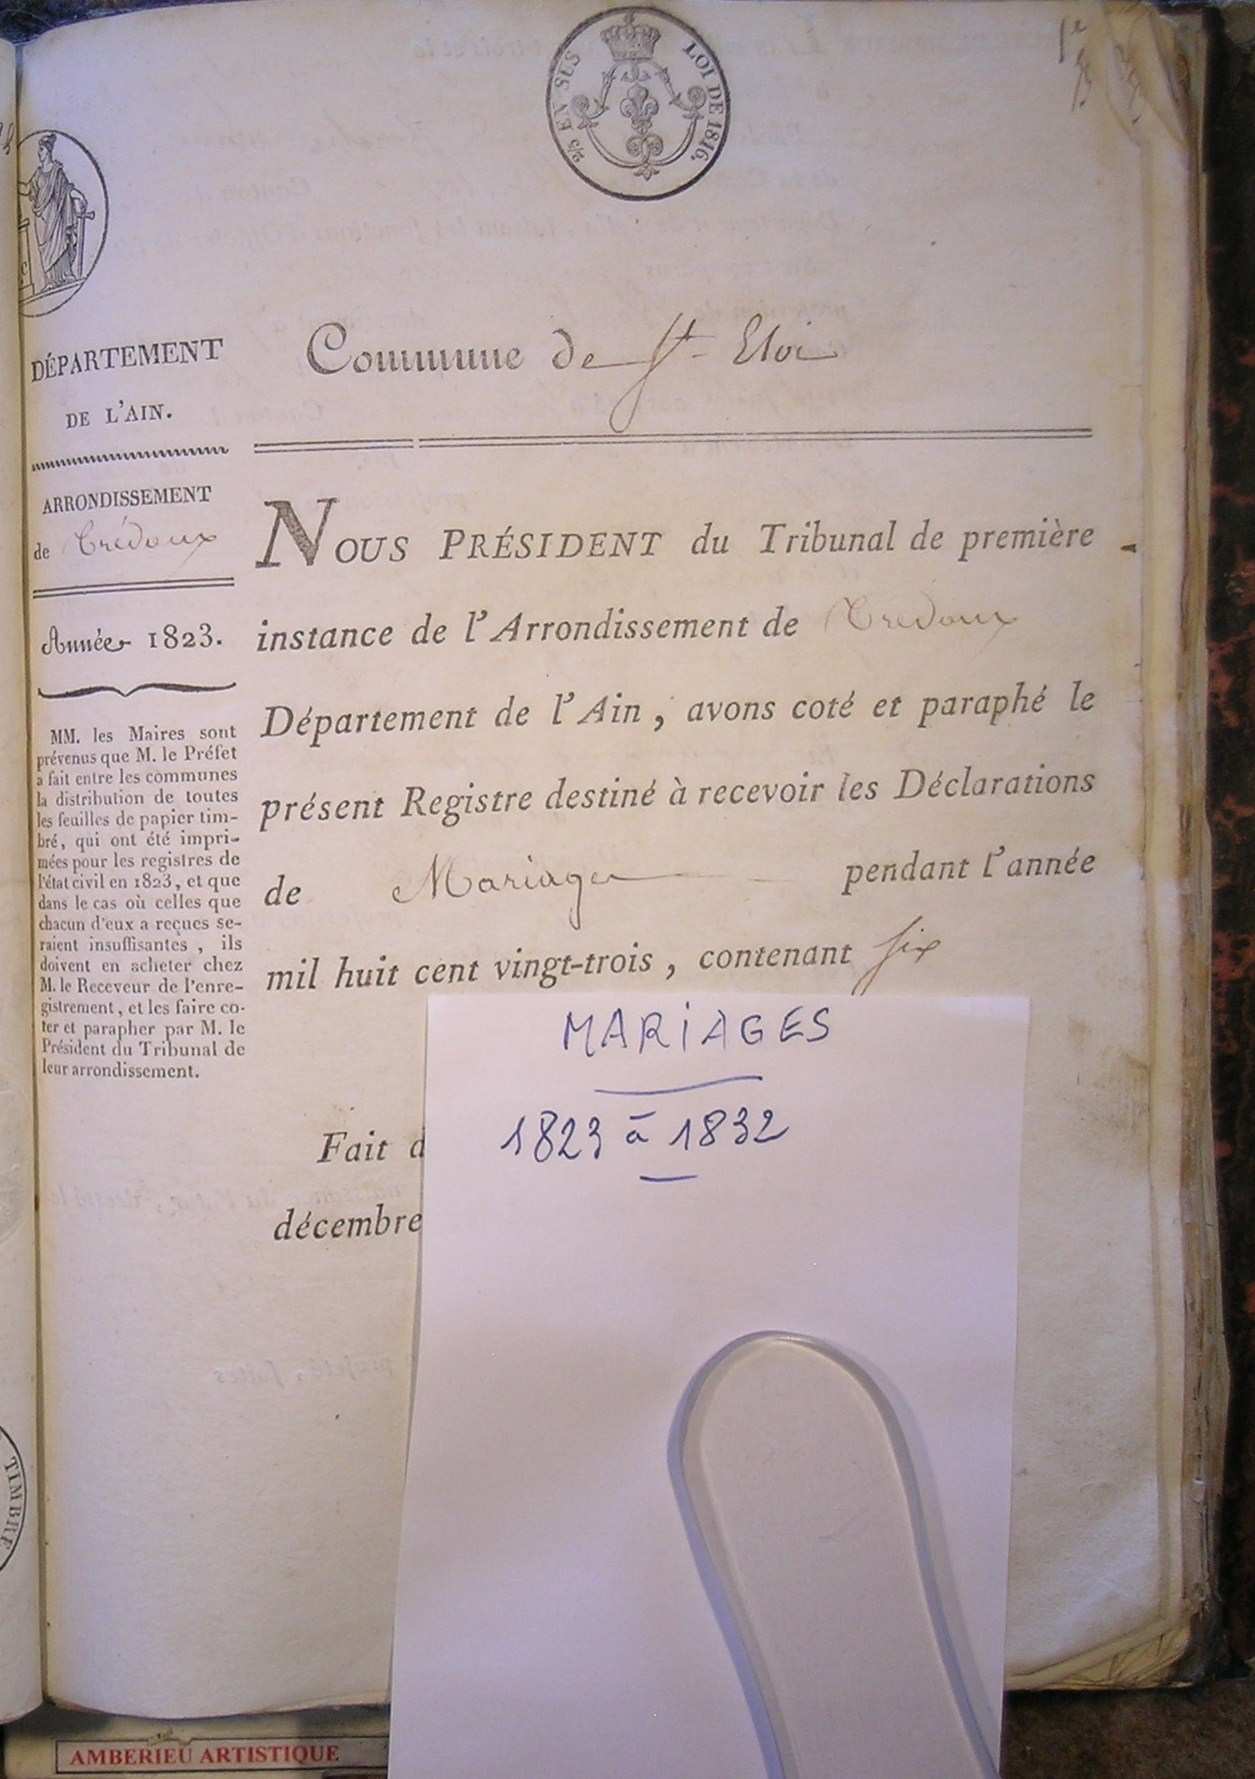 2/5 EN SUS
LOI DE 1816.
1e
DÉPARTEMENT
DE L'AIN.
ARRONDISSEMENT
de Trévoux
Année 1823.
MM. les Maires sont
prévenus que M. le Préfet
a fait entre les communes
la distribution de toutes
les feuilles de papier tim-
bré, qui ont été impri-
mées pour les registres de
l'état civil en 1823, et que
dans le cas où celles que
chacun d'eux a reçues se-
raient insuffisantes, ils
doivent en acheter chez
M. le Receveur de l'enre-
gistrement, et les faire co-
ter et parapher par M. le
Président du Tribunal de
leur arrondissement.
Commune de St- Eloi
NOUS PRÉSIDENT du Tribunal de première
instance de l'Arrondissement de Trévoux
Département de l'Ain, avons coté et paraphé le
présent Registre destiné à recevoir les Déclarations
de Mariages pendant l'année
mil huit cent vingt-trois, contenant six
Fait d
décembre
MARIAGES
1823 à 1832
TIMBRE
AMBERIEU ARTISTIQUE